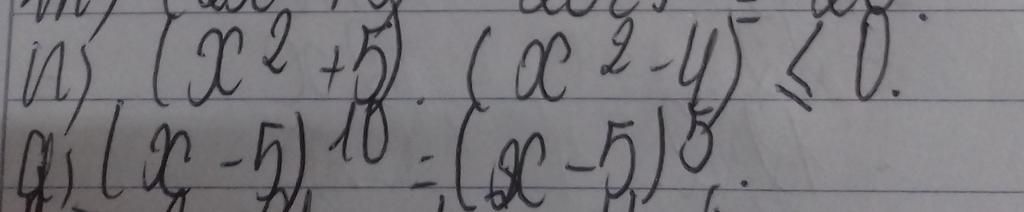 n) (x² + 5) . (x² - 4) ≤ 0.
q) (x - 5)¹⁰ = (x - 5)⁵.